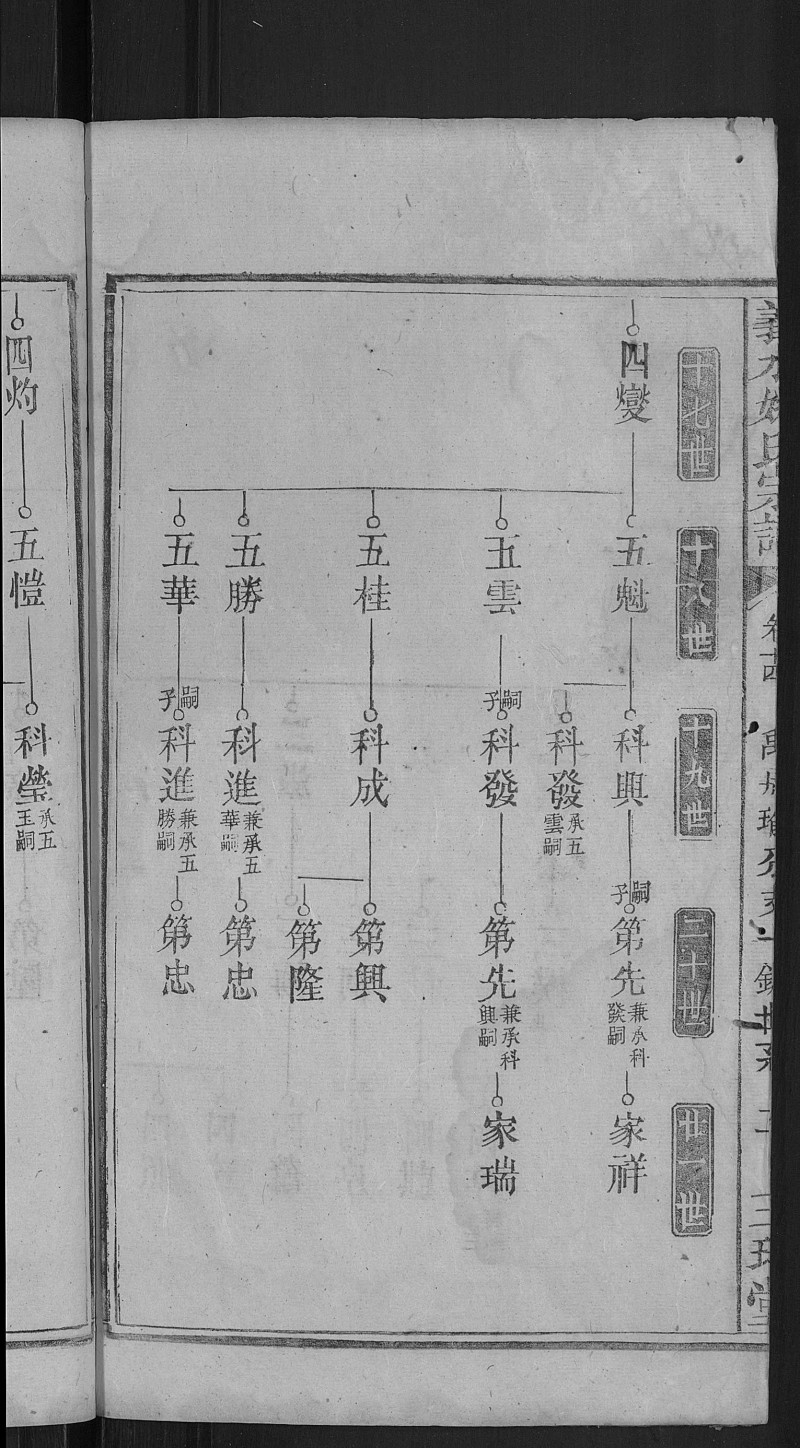 十七世
十八世
十九世
二十世
廿一世
四燮
五魁
科興
嗣子
第先
兼承科
發嗣
家祥
科發
承五
雲嗣
五雲
嗣子
科發
第先
兼承科
興嗣
家瑞
五桂
科成
第興
第隆
五勝
科進
兼承五
華嗣
第忠
五華
嗣子
科進
兼承五
勝嗣
第忠
四灼
五愷
科瑩
承五
玉嗣